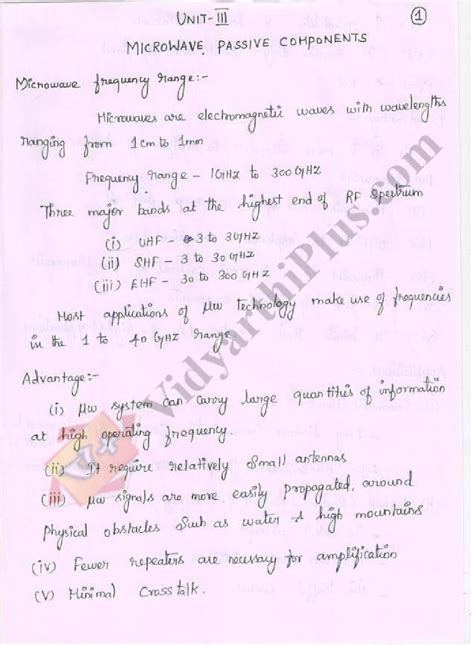 UNIT-III
1
MICROWAVE PASSIVE COMPONENTS
Microwave frequency range:-
Microwaves are electromagnetic waves with wavelengths
ranging from 1cm to 1mm
Frequency range - 1GHz to 300GHz
Three major bands at the highest end of RF Spectrum
(i) UHF - 3 to 3GHz
(ii) SHF - 3 to 30GHz
(iii) EHF - 30 to 300GHz
Most applications of μw technology make use of frequencies
in the 1 to 40GHz range
Advantage:-
(i) μw system can carry large quantities of information
at high operating frequency.
(ii) It require relatively small antennas
(iii) μw signals are more easily propagated, around
physical obstacles such as water & high mountains
(iv) Fewer repeaters are necessay for amplification
(V) Minimal Cross talk.
VidyarthiPlus.com
V+